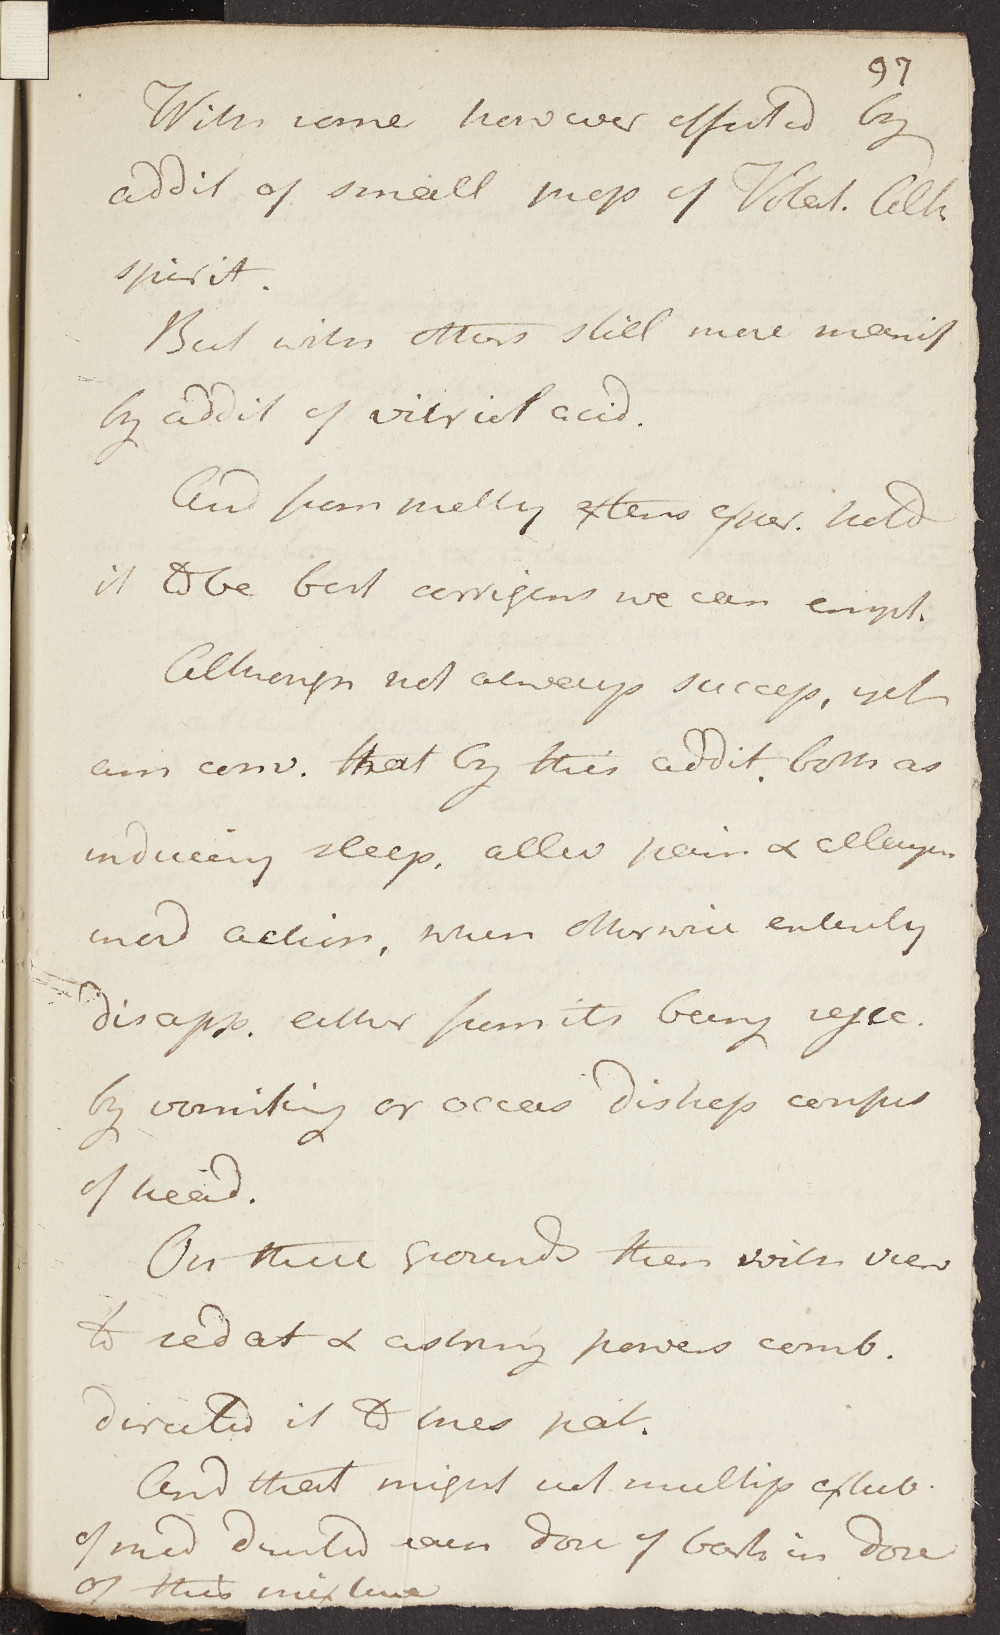 97
With some however effected by
addit of small prop of Volat. Alk
spirit.
But with others still more manif
by addit of vitriol acid.
And from mellty extens exper. hold
it to be best corrigens we can empl.
Although not always success, yet
am conv. that by this addit. both as
inducing sleep, allev pain &
morb action, when otherwise entirely
disapp. either from its being rejec.
by vomiting or occas distress confus
of head.
On these grounds then with view
to sedat & astring powers comb.
directed it to this pat.
And that might not multip exhib.
of med directed each dose of bark in dose
of this mixture